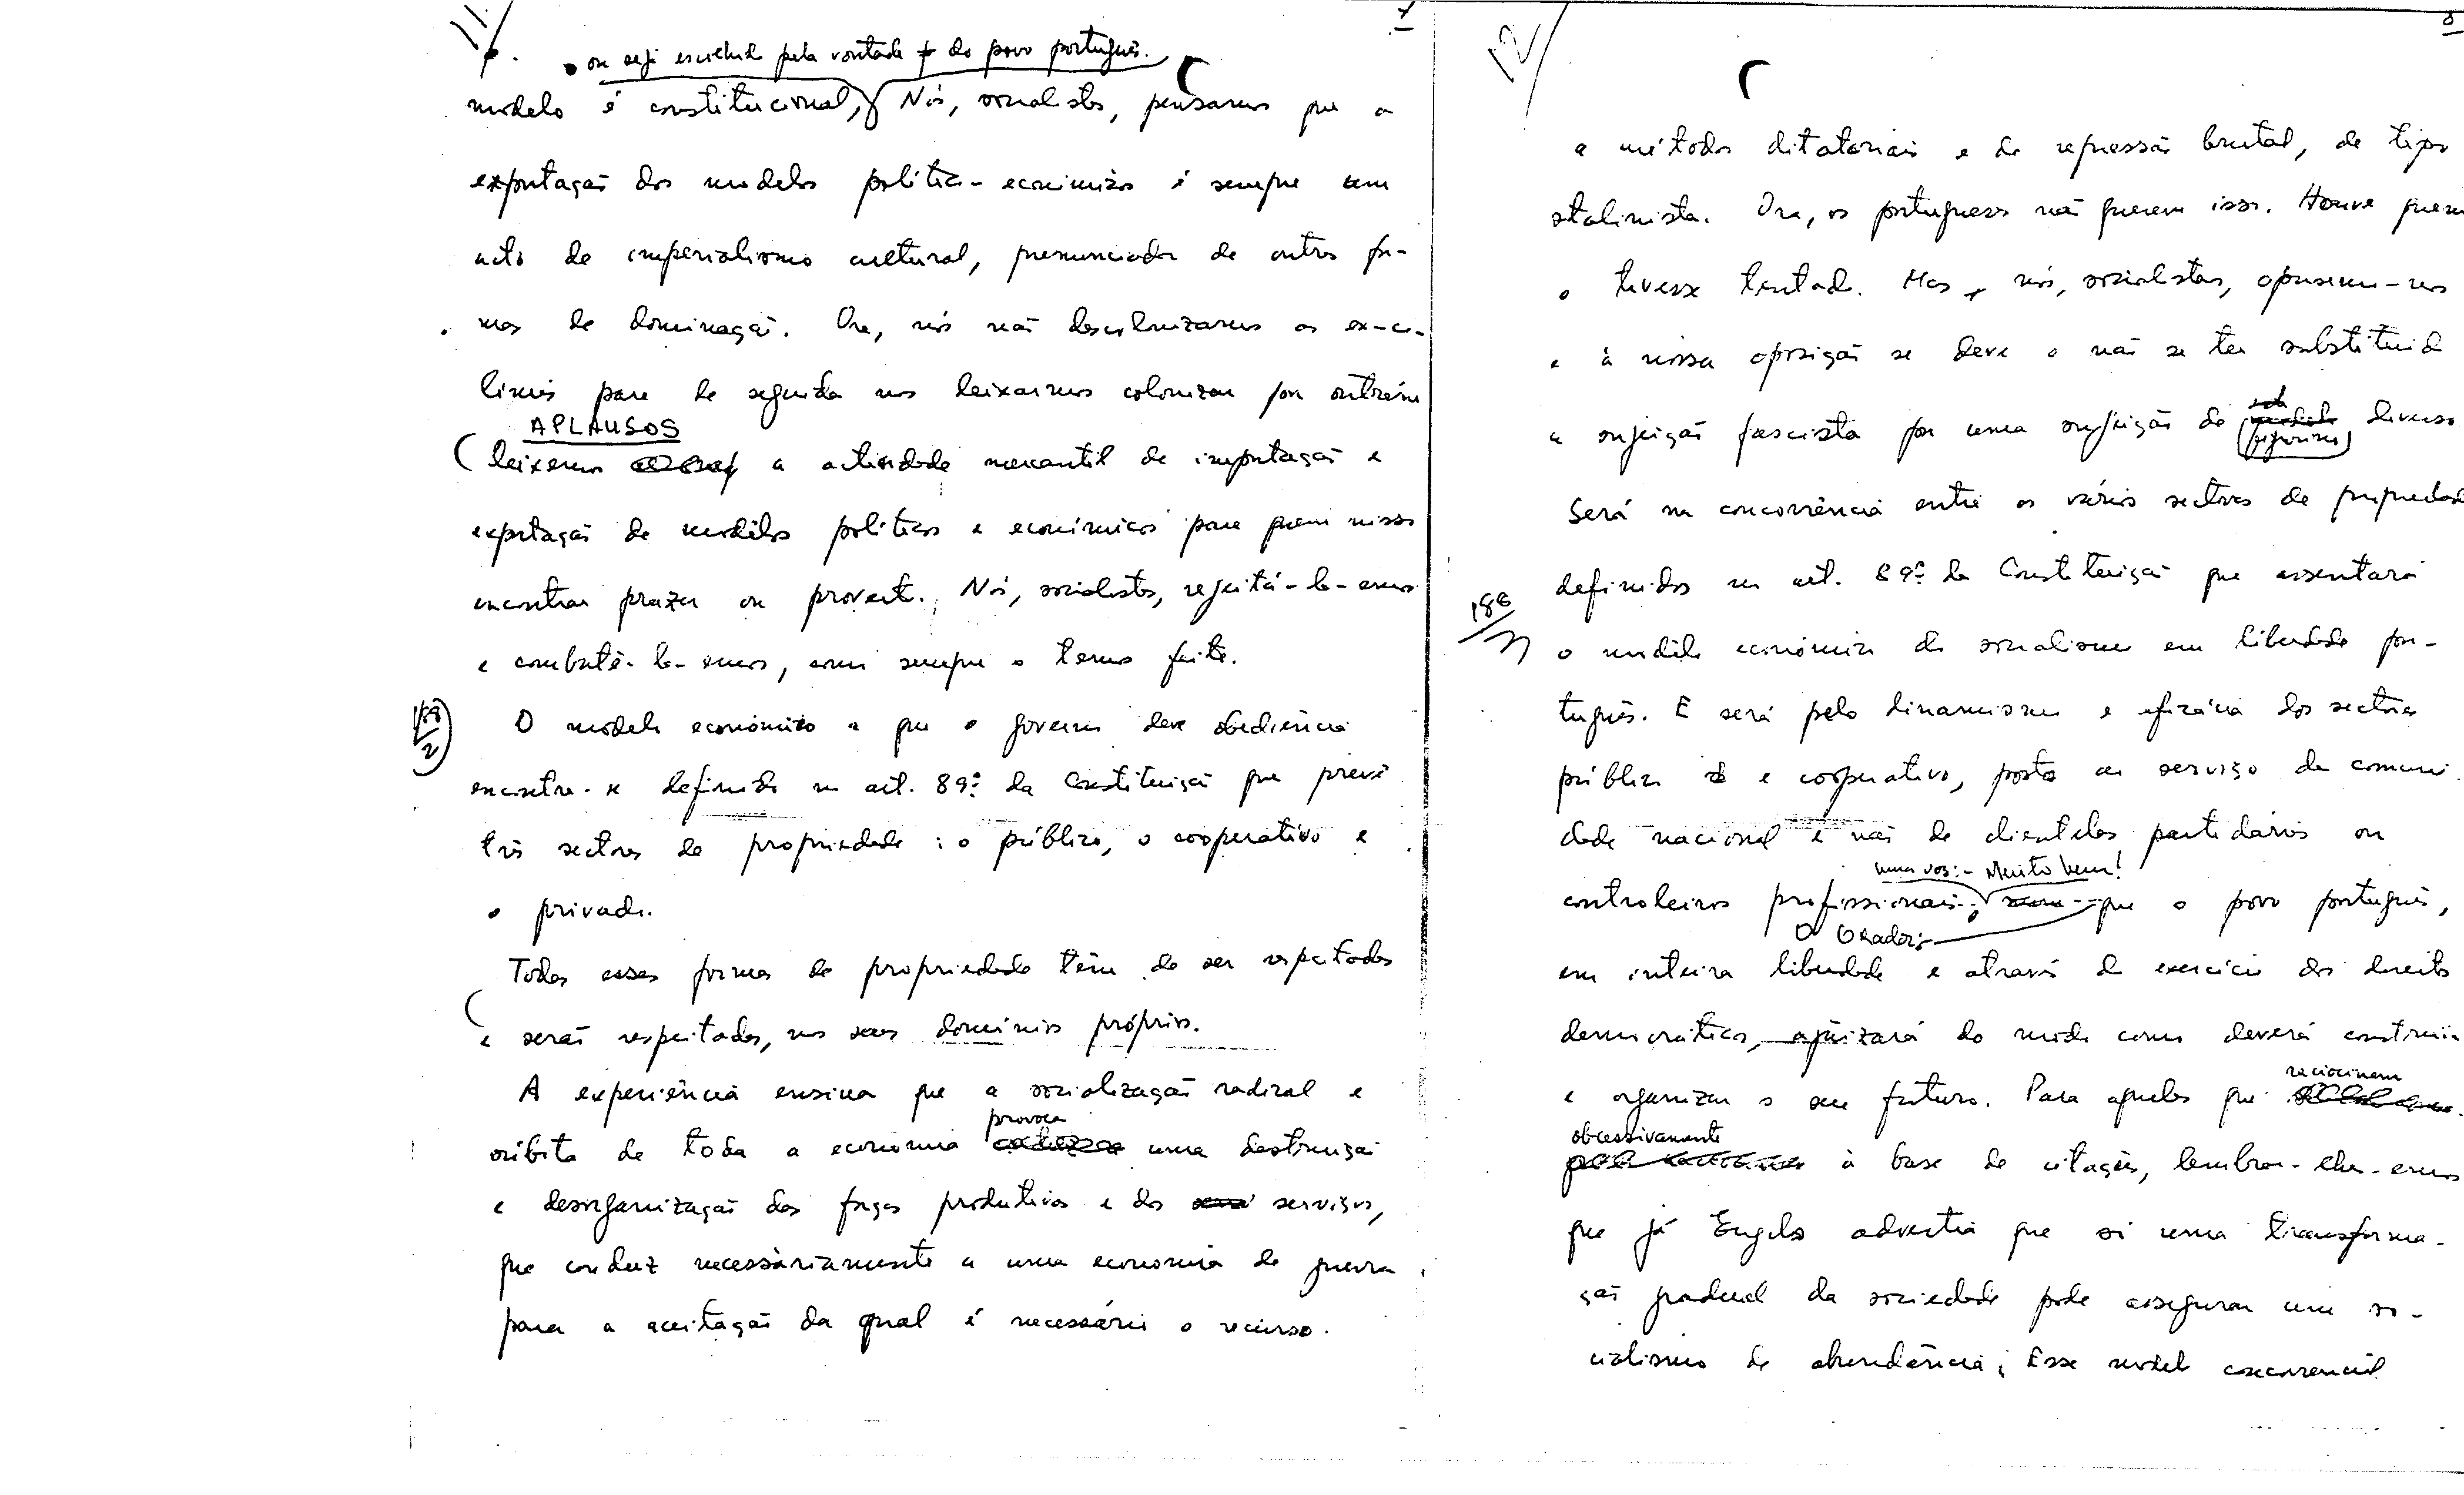 11.
7
. ou seja escolhido pela vontade do povo português.
modelo é constitucional, Nós, socialistas, pensamos que a
exportação dos modelos político-económicos é sempre um
acto de imperialismo cultural, prenunciador de outras for-
mas de dominação. Ora, nós não descolonizamos as ex-co-
lónias para de seguida nos deixarmos colonizar por outrém
APLAUSOS
(deixemos a actividade mercantil de importação e
exportação de modelos políticos e económicos para quem nisso
encontrar prazer ou proveito. Nós, socialistas, rejeitá-lo-emos
e combatê-lo-emos, como sempre o temos feito.
O modelo económico a que o governo deve obediência
encontra-se definido no art. 89º da Constituição que prevê
três sectores de propriedade: o público, o cooperativo e
o privado.
Todas essas formas de propriedade têm de ser respeitadas
e serão respeitadas, nos seus domínios próprios.
A experiência ensina que a socialização radical e
provoca
súbita de toda a economia uma destruição
e desorganização das forças produtivas e dos serviços,
que conduz necessàriamente a uma economia de guerra,
para a aceitação da qual é necessário o recurso.
12
8
a métodos ditatoriais e de repressão brutal, de tipo
stalinista. Ora, os portugueses não querem isso. Houve quem
o tivesse tentado. Mas, nós, socialistas, opusemo-nos
e à nossa oposição se deve o não se ter substituído
a sujeição fascista por uma sujeição de (figurino) diverso
Será na concorrência entre os vários sectores de propriedade
definidos no art. 89º da Constituição que assentará
o modelo económico do socialismo em liberdade por-
tuguês. E será pelo dinamismo e eficácia dos sectores
público e cooperativo, postos ao serviço da comuni-
dade nacional e não de clientelas partidárias ou
uma voz:- Muito bem!
controleiros profissionais, que o povo português,
O Orador:-
em inteira liberdade e através do exercício dos direitos
democráticos, ajuizará do modo como deverá construir
raciocinem
e organizar o seu futuro. Para aqueles que
obcessivamente
à base de citações, lembrar-lhes-emos
que já Engels advertia que só uma transforma-
ção gradual da sociedade pode assegurar um so-
cialismo de abundância; Esse modelo concorrencial